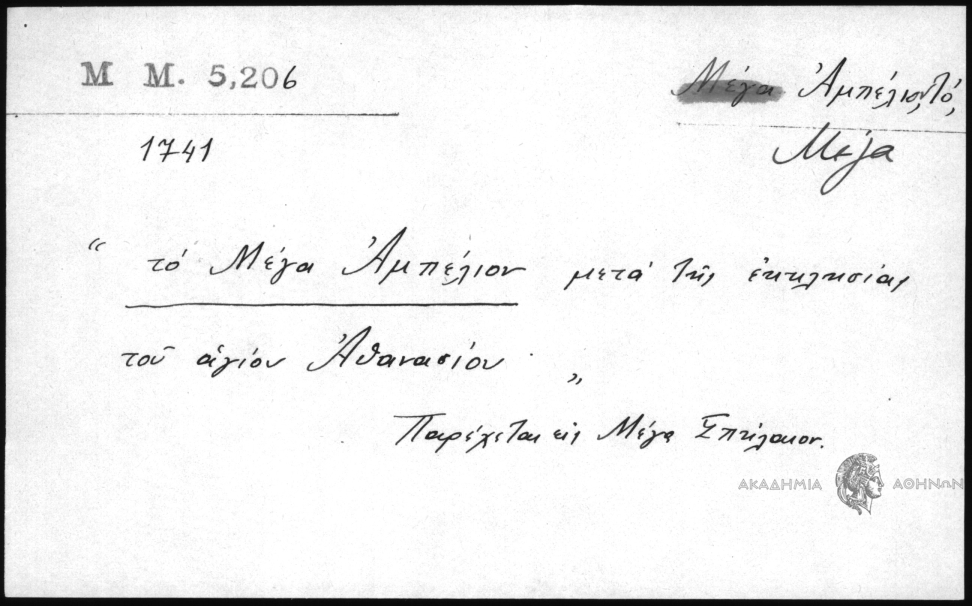 M M. 5,206
Μέγα Ἀμπέλιον, τό,
Μέγα
1741
“ τό Μέγα Ἀμπέλιον μετά τῆς ἐκκλησίας
τοῦ ἁγίου Ἀθανασίου „
Παρέχεται εἰς Μέγα Σπήλαιον.
ΑΚΑΔΗΜΙΑ ΑΘΗΝΩΝ